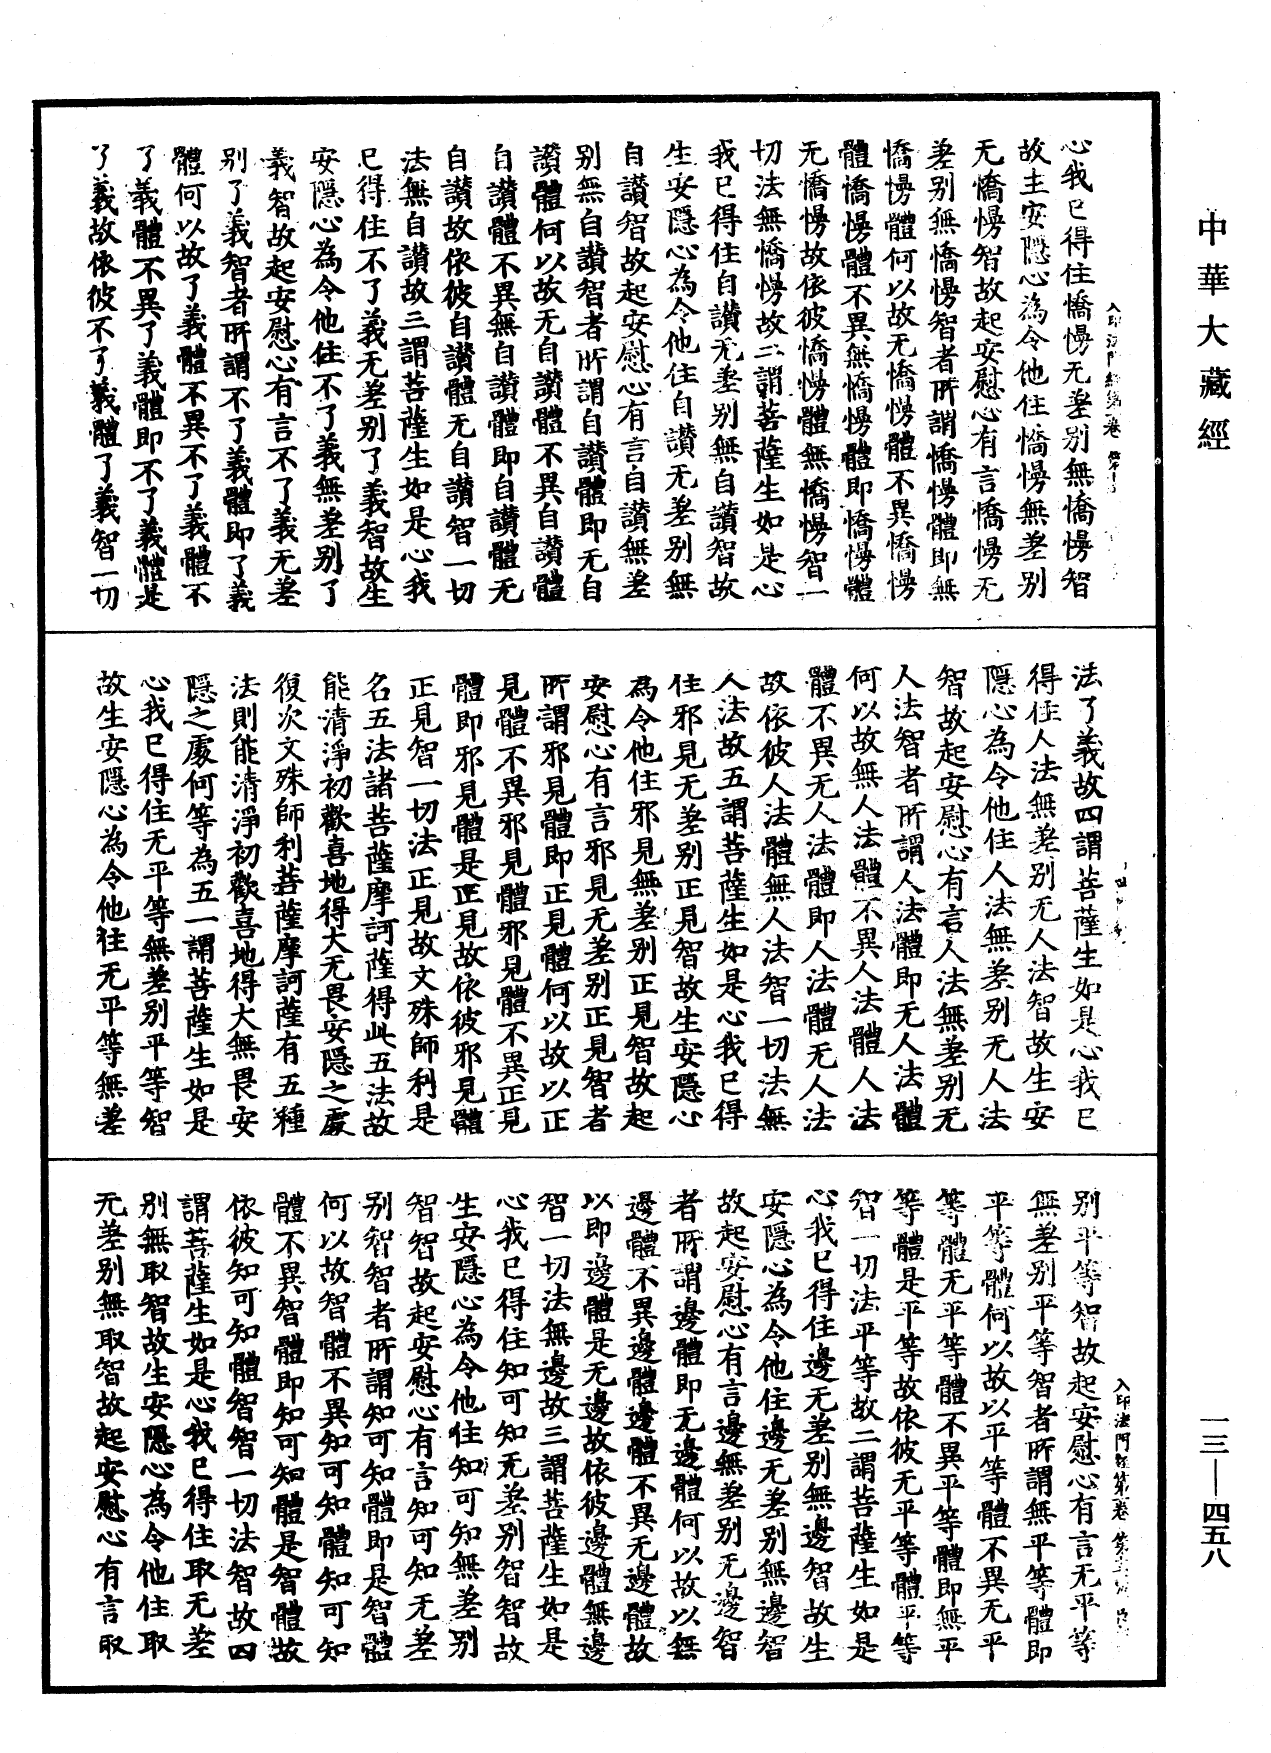 中華大藏經
心我已得住憍慢无差别無憍慢智
故生安隱心為令他住憍慢無差别
无憍慢智故起安慰心有言憍慢无
差别無憍慢智者所謂憍慢體即無
憍慢體何以故无憍慢體不異憍慢
體憍慢體不異無憍慢體即憍慢體
无憍慢故依彼憍慢體無憍慢智一
切法無憍慢故二謂菩薩生如是心
我已得住自讃无差别無自讃智故
生安隱心為令他住自讃无差别無
自讃智故起安慰心有言自讃無差
别無自讃智者所謂自讃體即无自
讃體何以故无自讃體不異自讃體
自讃體不異無自讃體即自讃體无
自讃故依彼自讃體无自讃智一切
法無自讃故三謂菩薩生如是心我
已得住不了義无差别了義智故生
安隱心為令他住不了義無差别了
義智故起安慰心有言不了義无差
别了義智者所謂不了義體即了義
體何以故了義體不異不了義體不
了義體不異了義體即不了義體是
了義故依彼不了義體了義智一切
法了義故四謂菩薩生如是心我已
得住人法無差别无人法智故生安
隱心為令他住人法無差别无人法
智故起安慰心有言人法無差别无
人法智者所謂人法體即无人法體
何以故無人法體不異人法體人法
體不異无人法體即人法體无人法
故依彼人法體無人法智一切法無
人法故五謂菩薩生如是心我已得
住邪見无差别正見智故生安隱心
為令他住邪見無差别正見智故起
安慰心有言邪見无差别正見智者
所謂邪見體即正見體何以故以正
見體不異邪見體邪見體不異正見
體即邪見體是正見故依彼邪見體
正見智一切法正見故文殊師利是
名五法諸菩薩摩訶薩得此五法故
能清淨初歡喜地得大无畏安隱之處
復次文殊師利菩薩摩訶薩有五種
法則能清淨初歡喜地得大無畏安
隱之處何等為五一謂菩薩生如是
心我已得住无平等無差别平等智
故生安隱心為令他住无平等無差
别平等智故起安慰心有言无平等
無差别平等智者所謂無平等體即
平等體何以故以平等體不異无平
等體无平等體不異平等體即無平
等體是平等故依彼无平等體平等
智一切法平等故二謂菩薩生如是
心我已得住邊无差别無邊智故生
安隱心為令他住邊无差别無邊智
故起安慰心有言邊無差别无邊智
者所謂邊體即无邊體何以故以無
邊體不異邊體邊體不異无邊體故
以即邊體是无邊故依彼邊體無邊
智一切法無邊故三謂菩薩生如是
心我已得住知可知无差别智智故
生安隱心為令他住知可知無差别
智智故起安慰心有言知可知无差
别智智者所謂知可知體即是智體
何以故智體不異知可知體知可知
體不異智體即知可知體是智體故
依彼知可知體智智一切法智故四
謂菩薩生如是心我已得住取无差
别無取智故生安隱心為令他住取
无差别無取智故起安慰心有言取
一三—四五八